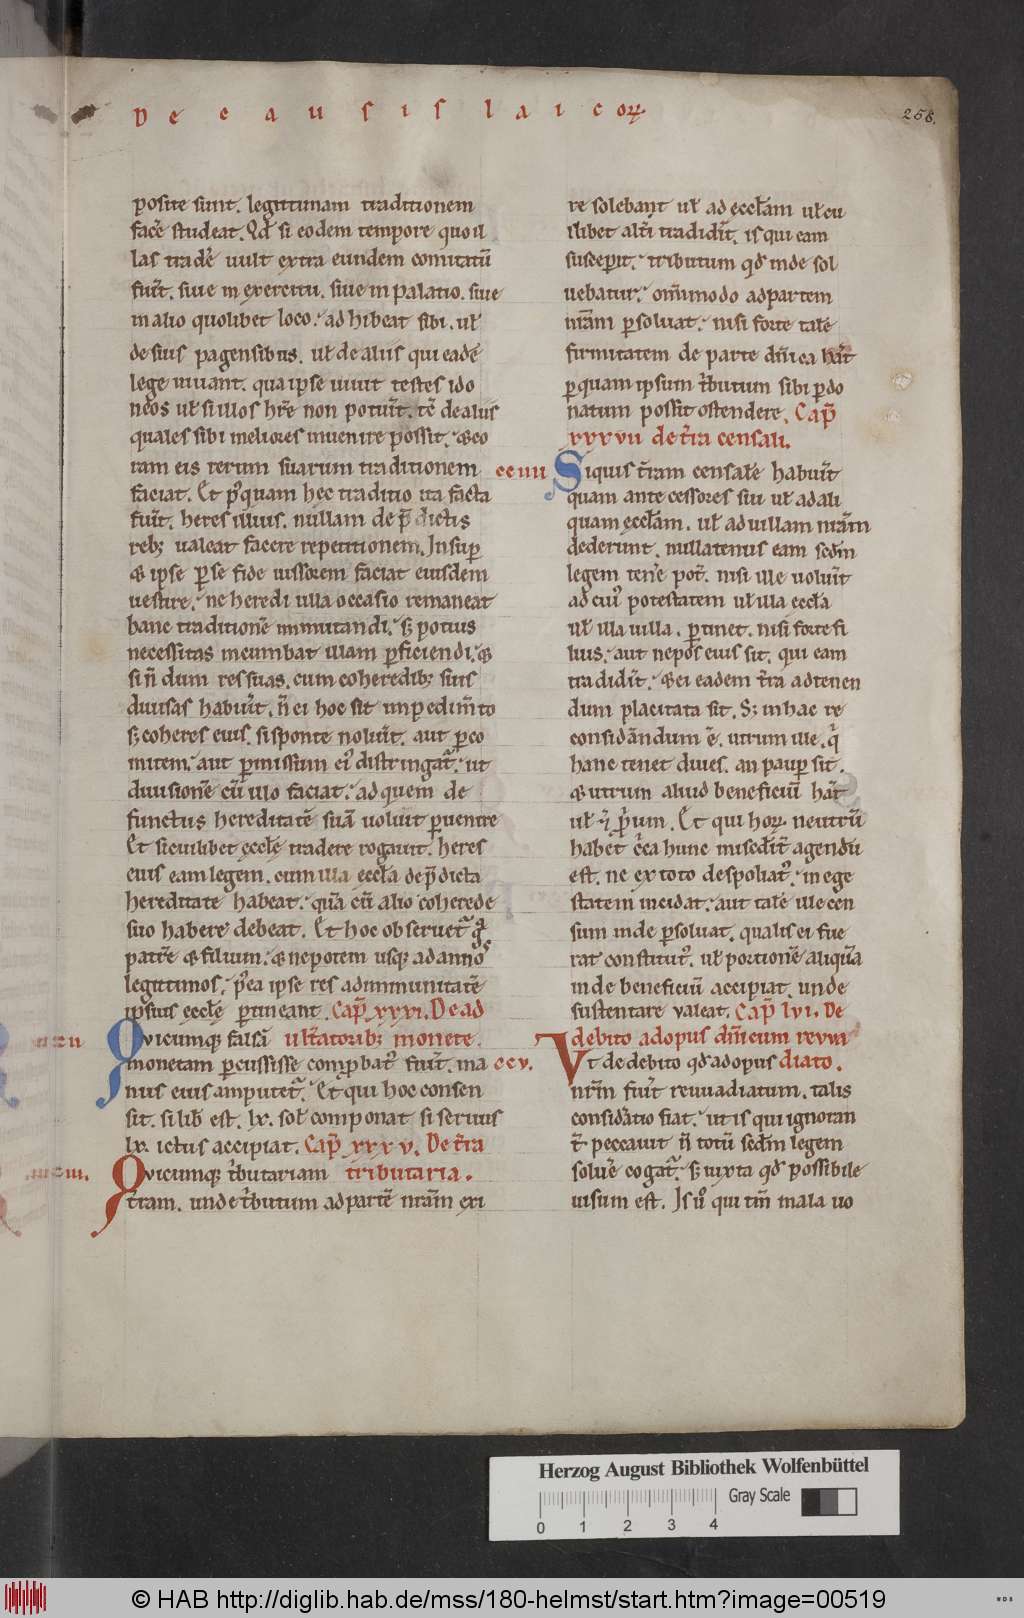 De causis laicoꝝ
258.
posite sunt. legittimam traditionem
facͤ studeat. Qđ si eodem tempore quo il
las tradͤe uult extra eundem comitatū
fuͥt. siue in exercitu. siue in palatio. siue
in alio quolibet loco. adhibeat sibi. ul̄
de suis pagensibus. ul̄ de aliis qui eadē
lege uiuant. qua ipse uiuit testes ido
neos ul̄ si illos hr̄e non potuͥt. tē de aliis
quales sibi meliores inuenire possit. & co
ram eis rerum suarum traditionem
faciat. Et pꝰquam hec traditio ita facta
fuͥt. heres illius. nullam de p̄dictis
rebꝫ ualeat facere repetitionem. Insuꝑ
& ipse ꝑ se fide iussorem faciat eiusdem
uestire. ne heredi ulla occasio remaneat
hanc traditionē inmutandi. sꝫ potius
necessitas incumbat illam ꝑficiendi. &
si n̄ dum res suas. cum coheredibꝫ suis
diuisas habuͥt. n̄ ei hoc sit impedim̄to
sꝫ coheres eius. si sponte noluͥt. aut ꝑ co
mitem. aut ꝑ missum eiꝰ distringat᷑. ut
diuisionē cū illo faciat. ad quem de
functus hereditatē suā uoluit ꝑuenire
Et si cuilibet ęcclę tradere rogauit. heres
eius eam legem. cum illa ęccl̄a de p̄dicta
hereditate habeat. quā cū alio coherede
suo habere debeat. Et hoc obseruet᷑ erga
patr̄e & filium. & nepotem usqꝫ ad annos
legitimos. pꝰea ipse res ad inmunitatē
ipsius ęcclę ꝑtineant. Cap̄ xxxvi. De ad
Qvicumqꝫ falsā ul̄tatoribꝫ monete.
monetam ꝑcussisse comꝓbatꝰ fuͥt. ma
nus eius amputet᷑. Et qui hoc consen
sit. si lib̄ est. lx. sol̄ componat si seruus
lx. ictus accipiat. Cap̄ xxxv. De t̄ra
Qvicumqꝫ tͥbutariam tributaria.
t̄ram. unde tͥbutum ad partē nr̄am exi
re solebant ul̄ ad ęccl̄am ul̄ cu
ilibet alt̄i tradidͥt. is qui eam
susceperit. tributum qđ inde sol
uebatur. om̄imodo ad partem
nr̄am ꝑsoluat. nisi forte talē
firmitatem de parte dn̄ica hāt
ꝑ quam ipsum tͥbutum sibi ꝑdo
natum possit ostendere. Cap̄
xxxvii de t̄ra censali.
ccuii
Siquis t̄ram censalē habuͥt
quam antecessores sui ul̄ ad ali
quam ęccl̄am. ul̄ ad uillam nr̄am
dederunt. nullatenus eam scdm̄
legem tenͤe pot̄. nisi ille uoluͥt
ad cuiꝰ potestatem ul̄ illa ęccl̄a
ul̄ illa uilla. ꝑtinet. nisi forte fi
lius. aut nepos eius sit. qui eam
tradidͥt. & ei eadem t̄ra ad tenen
dum placitata sit. Sꝫ in hac re
considāndum ē. utrum ille. qͥ
hanc tenet diues. an pauꝑ sit.
& utrum aliud beneficiū hāt
ul̄ ꝓprium. Et qui hoꝝ neutrū
habet cͥca hunc misedͥt̄ agendū
est. ne ex toto despoliatꝰ. in ege
statem incidat. aut talē ille cen
sum inde ꝑsoluat. qualis ei fue
rat constitutꝰ. ul̄ portionē aliquā
inde beneficiū accipiat. unde
sustentare ualeat. Cap̄ lvi. De
debito ad opus dn̄icum revva
ccv.
Vt de debito qđ ad opus diato.
nr̄m fuͥt reuuadiatum. talis
consideratio fiat. ut is qui ignoran
t̄ peccauit n̄ totū scdm̄ legem
soluͤe cogat᷑. sꝫ iuxta qđ possibile
uisum est. Is ū qui tm̄ mala uo
Herzog August Bibliothek Wolfenbüttel
Gray Scale
0 1 2 3 4
© HAB http://diglib.hab.de/mss/180-helmst/start.htm?image=00519